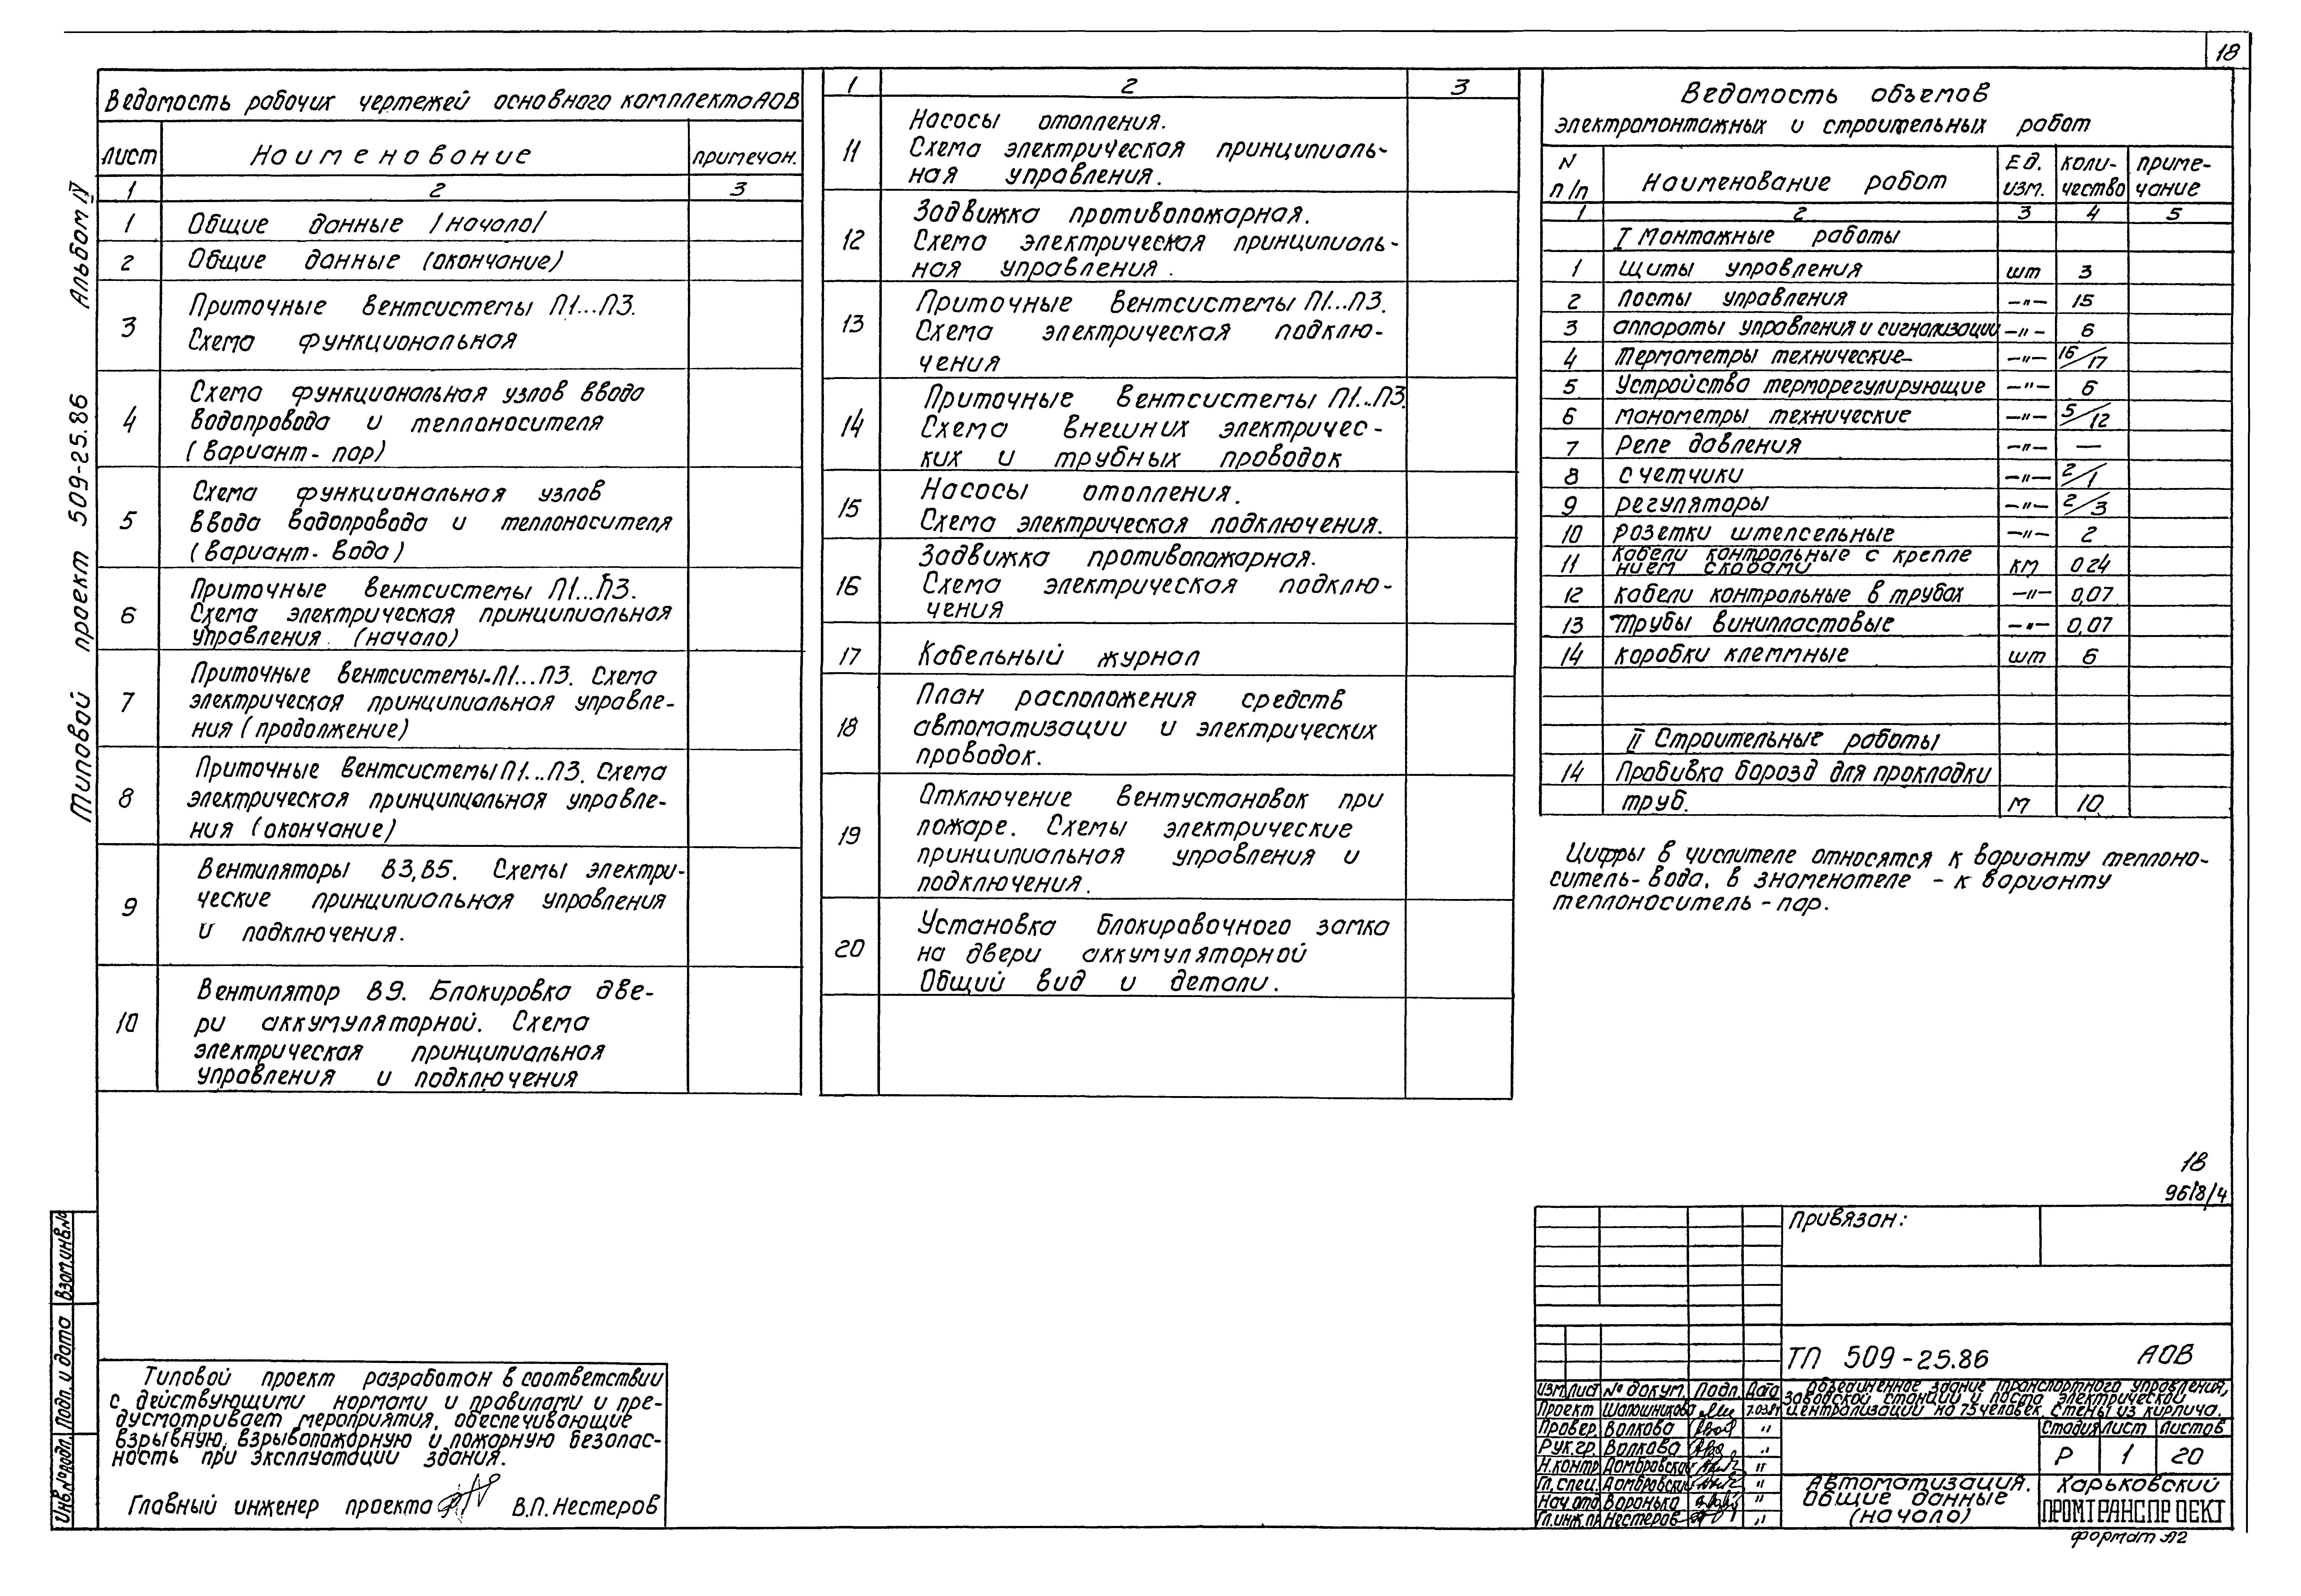 18
Альбом IV
Типовой проект 509-25.86
Ведомость рабочих чертежей основного комплекта АОВ
лист Наименование примечан.
1 2 3
1 Общие данные /начало/
2 Общие данные (окончание)
3 Приточные вентсистемы П1...П3.
Схема функциональная
4 Схема функциональная узлов ввода
водопровода и теплоносителя
(вариант - пар)
5 Схема функциональная узлов
ввода водопровода и теплоносителя
(вариант - вода)
6 Приточные вентсистемы П1...П3.
Схема электрическая принципиальная
управления. (начало)
7 Приточные вентсистемы П1...П3. Схема
электрическая принципиальная управле-
ния (продолжение)
8 Приточные вентсистемы П1...П3. Схема
электрическая принципиальная управле-
ния (окончание)
9 Вентиляторы В3, В5. Схемы электри-
ческие принципиальная управления
и подключения.
10 Вентилятор В9. Блокировка две-
ри аккумуляторной. Схема
электрическая принципиальная
управления и подключения
1 2 3
11 Насосы отопления.
Схема электрическая принципиаль-
ная управления.
12 Задвижка противопожарная.
Схема электрическая принципиаль-
ная управления.
13 Приточные вентсистемы П1...П3.
Схема электрическая подклю-
чения
14 Приточные вентсистемы П1...П3.
Схема внешних электричес-
ких и трубных проводок
15 Насосы отопления.
Схема электрическая подключения.
16 Задвижка противопожарная.
Схема электрическая подклю-
чения
17 Кабельный журнал
18 План расположения средств
автоматизации и электрических
проводок.
19 Отключение вентустановок при
пожаре. Схемы электрические
принципиальная управления и
подключения.
20 Установка блокировочного замка
на двери аккумуляторной
Общий вид и детали.
Ведомость объемов
электромонтажных и строительных работ
N п/п Наименование работ Ед. изм. коли-чество приме-чание
1 2 3 4 5
I Монтажные работы
1 Щиты управления шт 3
2 Посты управления —"— 15
3 аппараты управления и сигнализации —"— 6
4 Термометры технические —"— 16/17
5 Устройства терморегулирующие —"— 6
6 манометры технические —"— 5/12
7 Реле давления —"— —
8 счетчики —"— 2/1
9 регуляторы —"— 2/3
10 розетки штепсельные —"— 2
11 кабели контрольные с крепле
нием скобами км 024
12 кабели контрольные в трубах —"— 0,07
13 Трубы винипластовые —"— 0,07
14 коробки клеммные шт 6
II Строительные работы
14 Пробивка борозд для прокладки
труб. м 10
Цифры в числителе относятся к варианту теплоно-
ситель - вода, в знаменателе - к варианту
теплоноситель - пар.
18
9618/4
Привязан:
ТП 509-25.86 АОВ
Объединенное здание транспортного управления,
заводской станции и поста электрической
централизации на 75 человек. Стены из кирпича.
Изм. лист № докум. Подп. Дата
Проект Шапошникова 7.03.86
Провер. Волкова "
Рук.гр. Волкова "
Н.контр Домбровская "
Гл.спец. Домбровская "
Нач.отд Воронько "
Гл.инж.пр Нестеров "
Стадия лист листов
Р 1 20
Автоматизация.
Общие данные
(начало)
Харьковский
ПРОМТРАНСПРОЕКТ
формат А2
Типовой проект разработан в соответствии
с действующими нормами и правилами и пре-
дусматривает мероприятия, обеспечивающие
взрывную, взрывопожарную и пожарную безопас-
ность при эксплуатации здания.
Главный инженер проекта В.П. Нестеров
Взам.инв.№
Подп. и дата
Инв.№ подл.